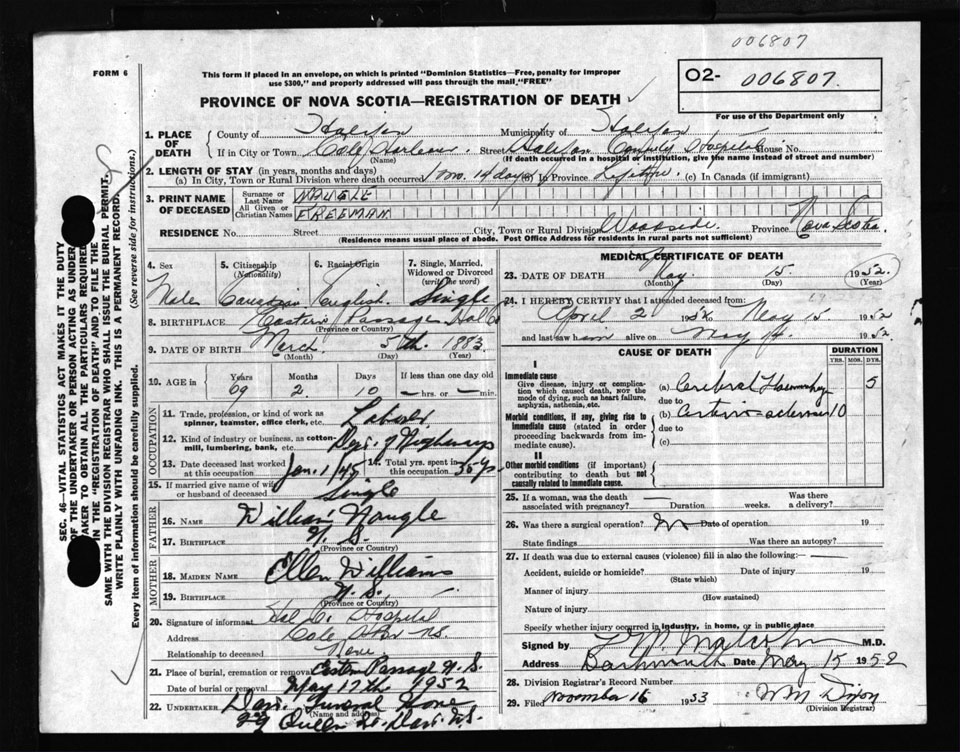 006807
FORM 6
This form if placed in an envelope, on which is printed "Dominion Statistics—Free, penalty for improper
use $300," and properly addressed will pass through the mail "FREE"
O2- 006807
For use of the Department only
PROVINCE OF NOVA SCOTIA—REGISTRATION OF DEATH
1. PLACE OF DEATH
County of Halifax Municipality of Halifax
If in City or Town Cole Harbour Street Halifax County Hospital House No.
(Name) (If death occurred in a hospital or institution, give the name instead of street and number)
2. LENGTH OF STAY (in years, months and days)
(a) In City, Town or Rural Division where death occurred 1 mo. 14 days (b) In Province Lifetime (c) In Canada (if immigrant)
3. PRINT NAME OF DECEASED
Surname or Last Name NAUGLE
All Given or Christian Names FREEMAN
RESIDENCE No. Street City, Town or Rural Division Woodside Province Nova Scotia
(Residence means usual place of abode. Post Office Address for residents in rural parts not sufficient)
4. Sex 5. Citizenship (Nationality) 6. Racial Origin 7. Single, Married, Widowed or Divorced (write the word)
Male Canadian English Single
8. BIRTHPLACE Eastern Passage Hal Co
(Province or Country)
9. DATE OF BIRTH March 5th 1883
(Month) (Day) (Year)
10. AGE in Years Months Days If less than one day old
69 2 10 hrs. min.
OCCUPATION
11. Trade, profession or kind of work as
spinner, teamster, office clerk, etc. Laborer
12. Kind of industry or business, as cotton-
mill, lumbering, bank, etc. Dept. of Highways
13. Date deceased last worked
at this occupation Jan. 1/45 14. Total yrs. spent in
this occupation 35 yrs
15. If married give name of wife
or husband of deceased Single
FATHER
16. NAME William Naugle
17. BIRTHPLACE N.S.
(Province or Country)
MOTHER
18. MAIDEN NAME Ellen Williams
19. BIRTHPLACE N.S.
(Province or Country)
20. Signature of informant Hal Co. Hospital
Address Cole Hbr N.S.
Relationship to deceased None
21. Place of burial, cremation or removal Eastern Passage N.S.
Date of burial or removal May 17th 1952
22. UNDERTAKER Dart. Funeral Home
(Name and address)
Queen St. Dart. N.S.
MEDICAL CERTIFICATE OF DEATH
23. DATE OF DEATH May 15 1952
(Month) (Day) (Year)
24. I HEREBY CERTIFY that I attended deceased from:
April 2 1952 to May 15 1952
and last saw him alive on May 1952
CAUSE OF DEATH
DURATION
YRS. MOS. DYS.
I
Immediate cause
Give disease, injury or complication which caused death, NOT the mode of dying, such as heart failure, asphyxia, asthenia, etc.
(a) Cerebral Haemorrhage 5
due to
Morbid conditions, if any, giving rise to immediate cause (stated in order proceeding backwards from immediate cause).
(b) Arterio-sclerosis 10
due to
(c)
II
Other morbid conditions (if important) contributing to death but not causally related to immediate cause.
25. If a woman, was the death
associated with pregnancy? Duration weeks. Was there a delivery?
26. Was there a surgical operation? No Date of operation 19
State findings Was there an autopsy?
27. If death was due to external causes (violence) fill in also the following:—
Accident, suicide or homicide? Date of injury 19
(State which)
Manner of injury
(How sustained)
Nature of injury
Specify whether injury occurred in industry, in home, or in public place
Signed by Malcolm M.D.
Address Dartmouth Date May 15 1952
28. Division Registrar's Record Number
29. Filed November 16 1953 W M Dixon
(Division Registrar)
SEC. 46—VITAL STATISTICS ACT MAKES IT THE DUTY
OF THE UNDERTAKER OR PERSON ACTING AS UNDER-
TAKER TO OBTAIN ALL THE PARTICULARS REQUIRED
IN THE "REGISTRATION OF DEATH" AND TO FILE THE
SAME WITH THE DIVISION REGISTRAR WHO SHALL ISSUE THE BURIAL PERMIT.
WRITE PLAINLY WITH UNFADING INK. THIS IS A PERMANENT RECORD.
Every item of information should be carefully supplied. (See reverse side for instructions.)